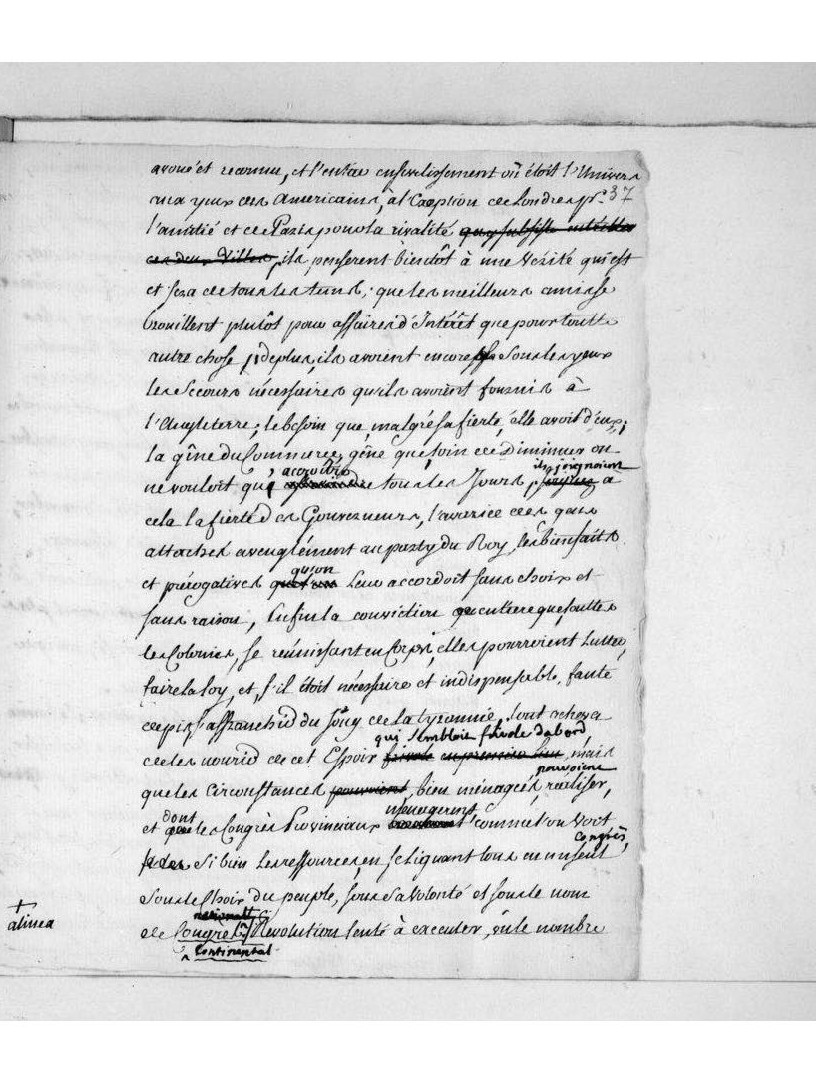 37
avoué et reconnu, et l'entier ensevelissement où étoit l'Univers
aux yeux des Americains, à l'exception de Londres pr.
l'amitié et de Paris pour la rivalité
ces deux Villes, ils penserent bientôt à une Verité qui est
et sera de tous les tems; que les meilleurs amis se
brouillent plutôt pour affaires d'Intérêt que pour toutte
autre chose, deplus, ils avoient encore sous les yeux
les secours nécessaires qu'ils avoient fournis à
l'Angleterre; le besoin que, malgré sa fierté, elle avoit d'eux;
la gêne du Commerce, gêne que, loin de diminuer on
accroître ils joignoient
ne vouloit qu' tous les Jours, à
cela la fierté des Gouverneurs, l'avarice des gens
attachés aveuglément au party du Roy, les bienfaits
qu'on
et prérogatives leur accordoit sans choix et
sans raison, Enfin la conviction entiere que, touttes
les Colonies, se reünissant en Corps, elles pourroient lutter,
faire la loy, et, s'il étoit nécessaire et indispensable, faute
de pis, s'affranchir du joug de la tyrannie, tout acheva
qui sembloit frivole d'abord,
de les nourir de cet Espoir frivole en premier lieu, mais
pouvoient
que les Circonstances pouvoient, bien ménagées, réaliser,
dont ménagerent
et que les Congrès Provinciaux comme l'on voit
Congrès,
si bien les ressources, en se liguant tous en un seul
sous le Choix du peuple, sous sa volonté et sous le nom
nationnal
+
alinea
de Congrès Revolution lente à executer, vu le nombre
Continental